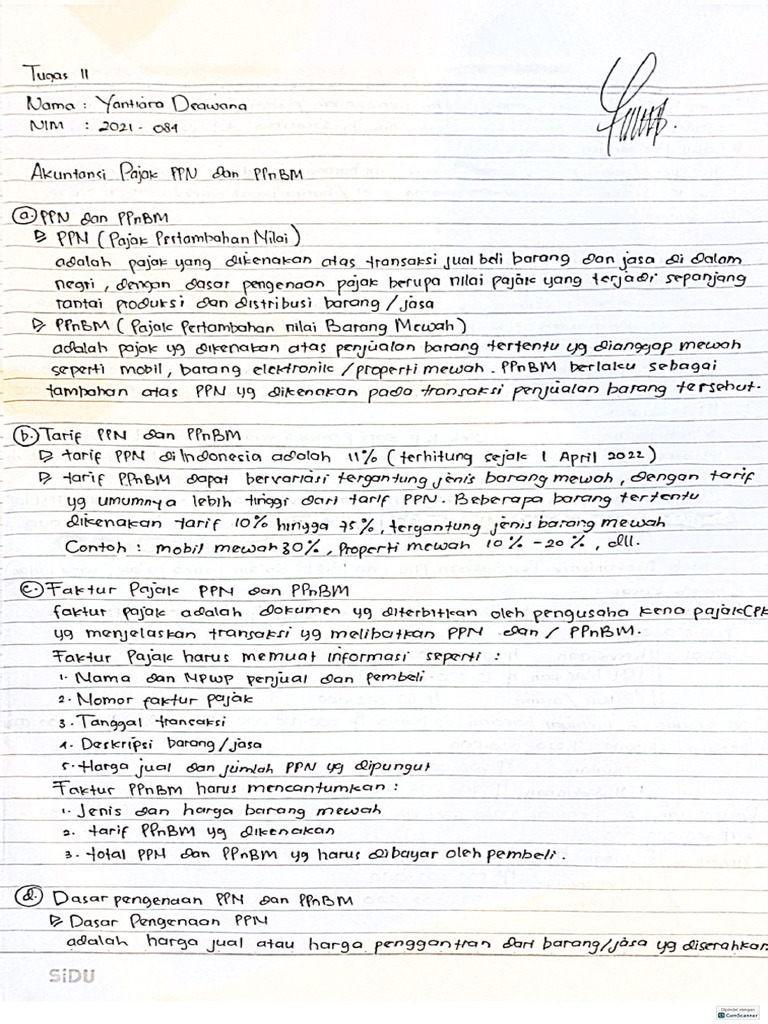 Tugas 11
Nama : Yantiara Deawana
NIM : 2021 - 084
Akuntansi Pajak PPN dan PPnBM
a. PPN dan PPnBM
▷ PPN (Pajak Pertambahan Nilai)
adalah pajak yang dikenakan atas transaksi jual beli barang dan jasa di dalam
negri, dengan dasar pengenaan pajak berupa nilai pajak yang terjadi sepanjang
rantai produksi dan distribusi barang / jasa
▷ PPnBM (Pajak Pertambahan nilai Barang Mewah)
adalah pajak yg dikenakan atas penjualan barang tertentu yg dianggap mewah
seperti mobil, barang elektronik / properti mewah. PPnBM berlaku sebagai
tambahan atas PPN yg dikenakan pada transaksi penjualan barang tersebut.
b. Tarif PPN dan PPnBM
▷ tarif PPN di Indonesia adalah 11% (terhitung sejak 1 April 2022)
▷ tarif PPnBM dapat bervariasi tergantung jenis barang mewah, dengan tarif
yg umumnya lebih tinggi dari tarif PPN. Beberapa barang tertentu
dikenakan tarif 10% hingga 75%, tergantung jenis barang mewah
Contoh : mobil mewah 30%, Properti mewah 10% - 20%, dll.
c. Faktur Pajak PPN dan PPnBM
faktur pajak adalah dokumen yg diterbitkan oleh pengusaha kena pajak (PK
yg menjelaskan transaksi yg melibatkan PPN dan / PPnBM.
Faktur Pajak harus memuat informasi seperti :
1. Nama dan NPWP penjual dan pembeli
2. Nomor faktur pajak
3. Tanggal transaksi
4. Deskripsi barang / jasa
5. Harga jual dan jumlah PPN yg dipungut
Faktur PPnBM harus mencantumkan :
1. Jenis dan harga barang mewah
2. tarif PPnBM yg dikenakan
3. total PPN dan PPnBM yg harus dibayar oleh pembeli.
d. Dasar pengenaan PPN dan PPnBM
▷ Dasar Pengenaan PPN
adalah harga jual atau harga penggantian dari barang/jasa yg diserahkan
SiDU
Dipindai dengan
CamScanner